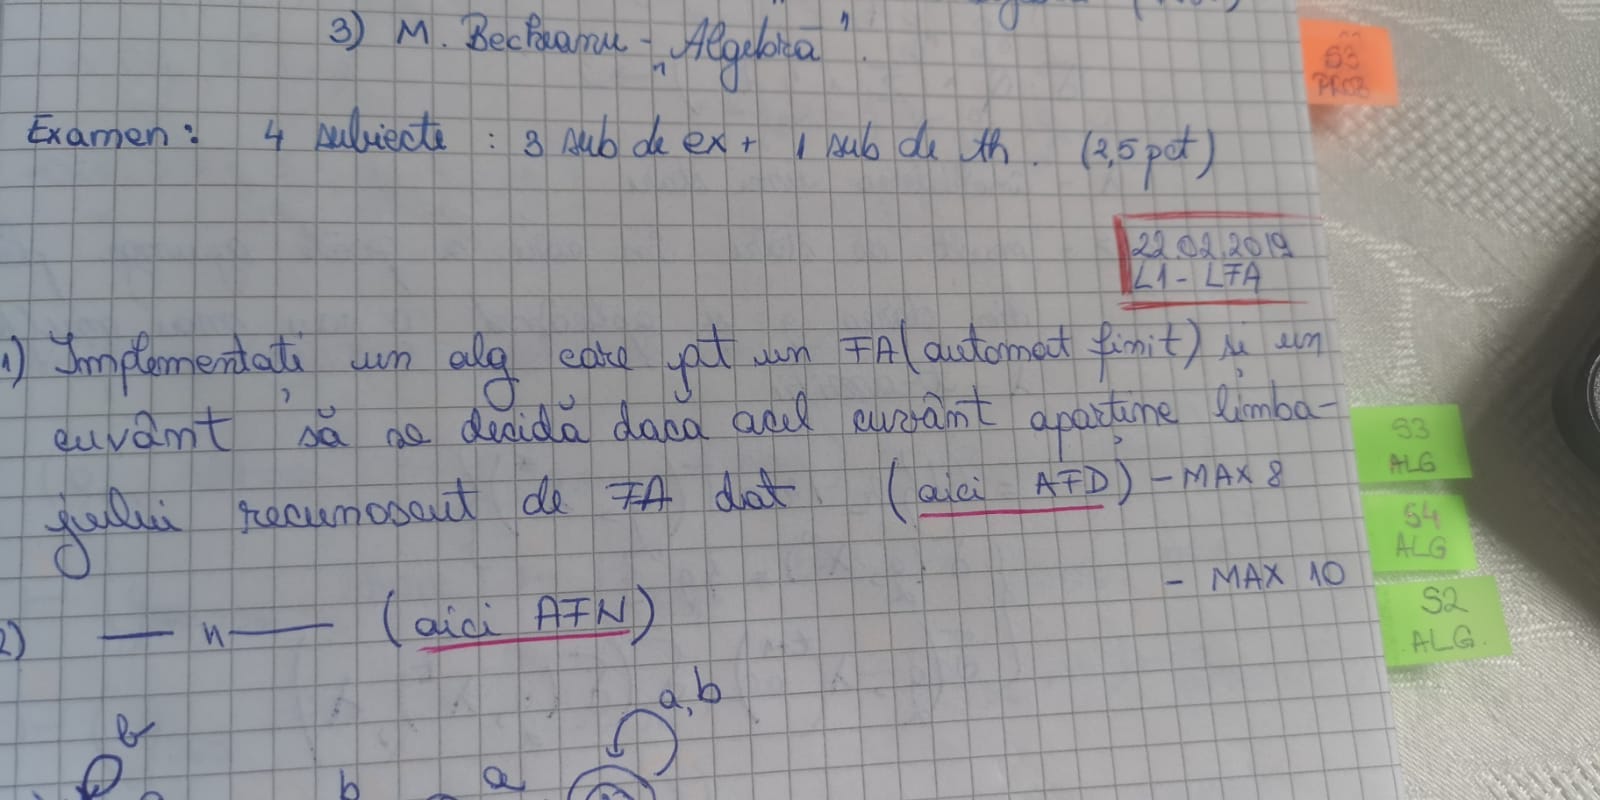 3) M. Becheanu - „Algebra”.
Examen: 4 subiecte : 3 sub de ex + 1 sub de th. (2,5 pct)
22.02.2019
L1 - LFA
1) Implementați un alg care pt un FA (automat finit) și un
cuvânt să se decidă dacă acel cuvânt aparține limba-
jului recunoscut de FA dat. (aici AFD) - MAX 8
- MAX 10
2) — n — (aici AFN)
a,b
b
b a
S3
PROB
S3
ALG
S4
ALG
S2
ALG.